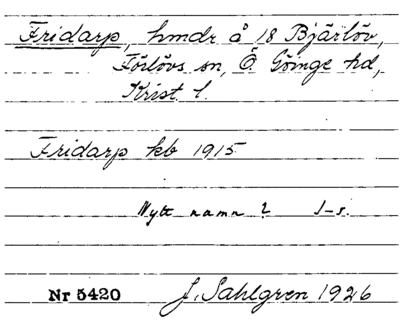 Fridarp, hmdr å 18 Bjärlöv,
Färlövs sn, Ö Göinge hd,
Krist. l.
Fridarp kb 1915
Nytt namn? J-s.
Nr 5420 J. Sahlgren 1926